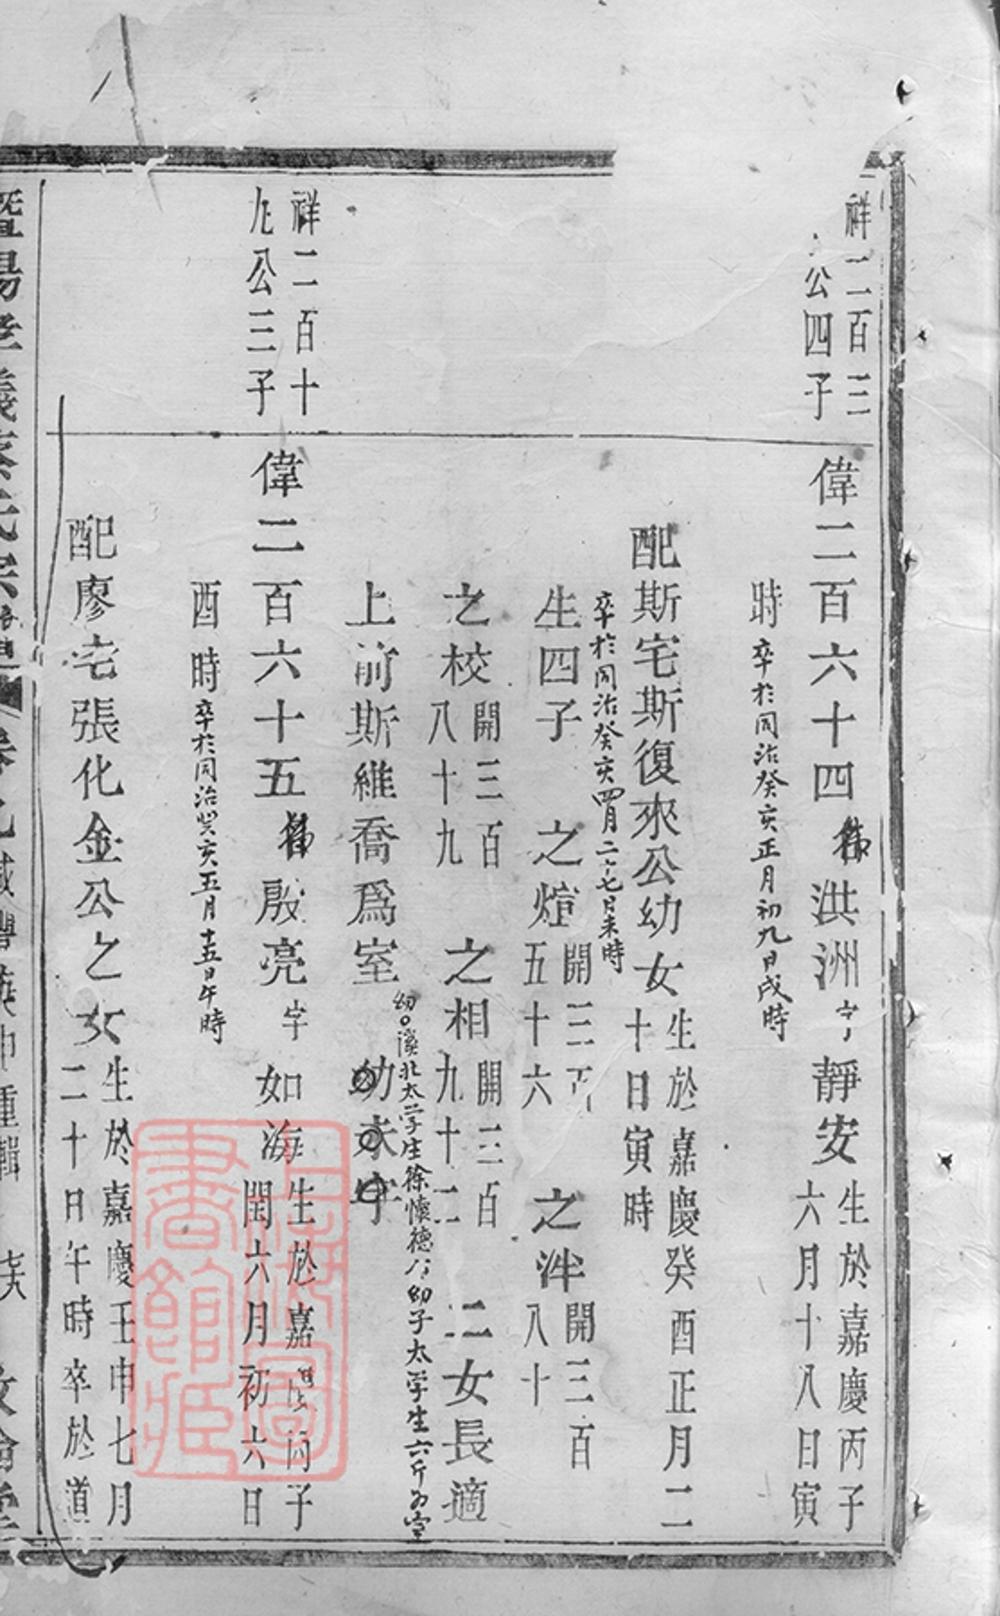 祥二百三
公四子
偉二百六十四 洪洲字靜安 生於嘉慶丙子
六月十八日寅
時 卒於同治癸亥正月初九日戌時
配斯宅斯復來公幼女 生於嘉慶癸酉正月二
十日寅時
卒於同治癸亥四月二十七日未時
生四子 之煊 開三百
五十六 之泮 開三百
八十
之校 開三百
八十九 之相 開三百
九十二 二女長適
上前斯維喬爲室 幼未字
幼溪北太学生徐懷德公幼子太学生六斤为室
祥二百十
九公三子
偉二百六十五 殷亮字如海 生於嘉慶丙子
閏六月初六日
酉時 卒於同治癸亥五月十五日午時
配廖宅張化金公之女 生於嘉慶壬申七月
二十日午時卒於道
暨陽孝義 氏宗譜 卷之 咸豐 申重輯 七十八 敘倫堂